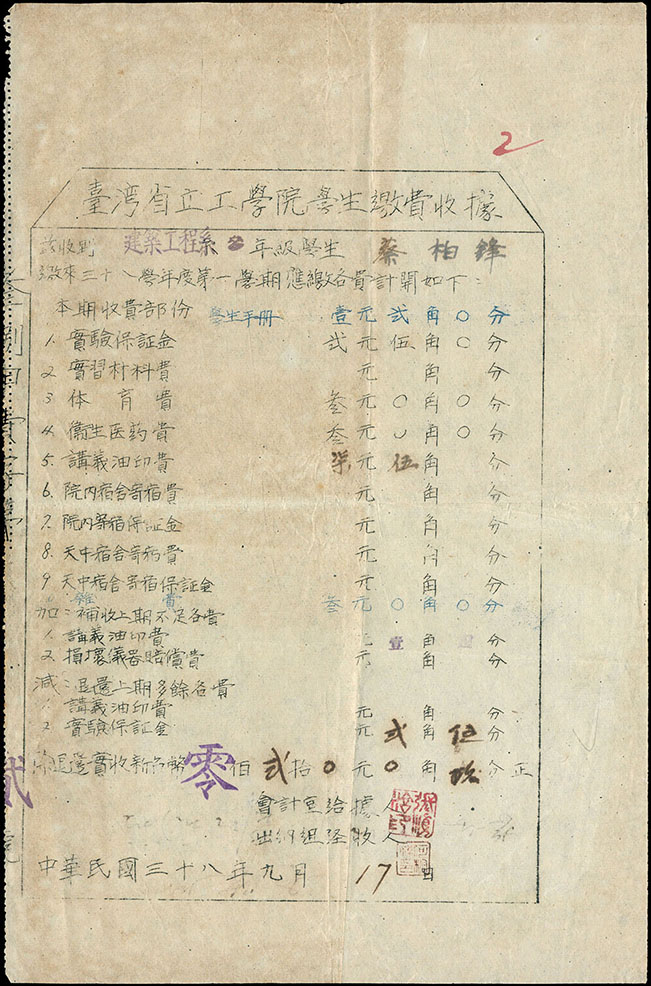 2
臺湾省立工學院學生繳費收據
茲收到 建築工程系 年級學生 蔡柏鋒
繳來三十八學年度第一學期應繳各費計開如下：
本期收費部份 學生手冊 壹元弍角〇分
1. 實驗保証金 弍元伍角〇分
2. 實習材料費 元 角 分
3 体育費 叁元〇角〇分
4. 衞生医药費 叁元〇角〇分
5. 講義油印費 柒元伍角 分
6. 院内宿舍寄宿費 元 角 分
7. 院内寄宿保証金 元 角 分
8. 天中宿舍寄宿費 元 角 分
9 天中宿舍寄宿保証金 元 角 分
雜費 叁元〇角〇分
加：補收上期不足各費
1. 講義油印費 元壹角 分
2. 損壞儀器賠償費 元 角 分
減：退還上期多餘各費
1. 講義油印費 元 角 分
2 實驗保証金 元弍角伍分
除退還實收新台幣零佰弍拾〇元〇角玖分正
會計室給據人
出納組経收人
中華民國三十八年九月17日